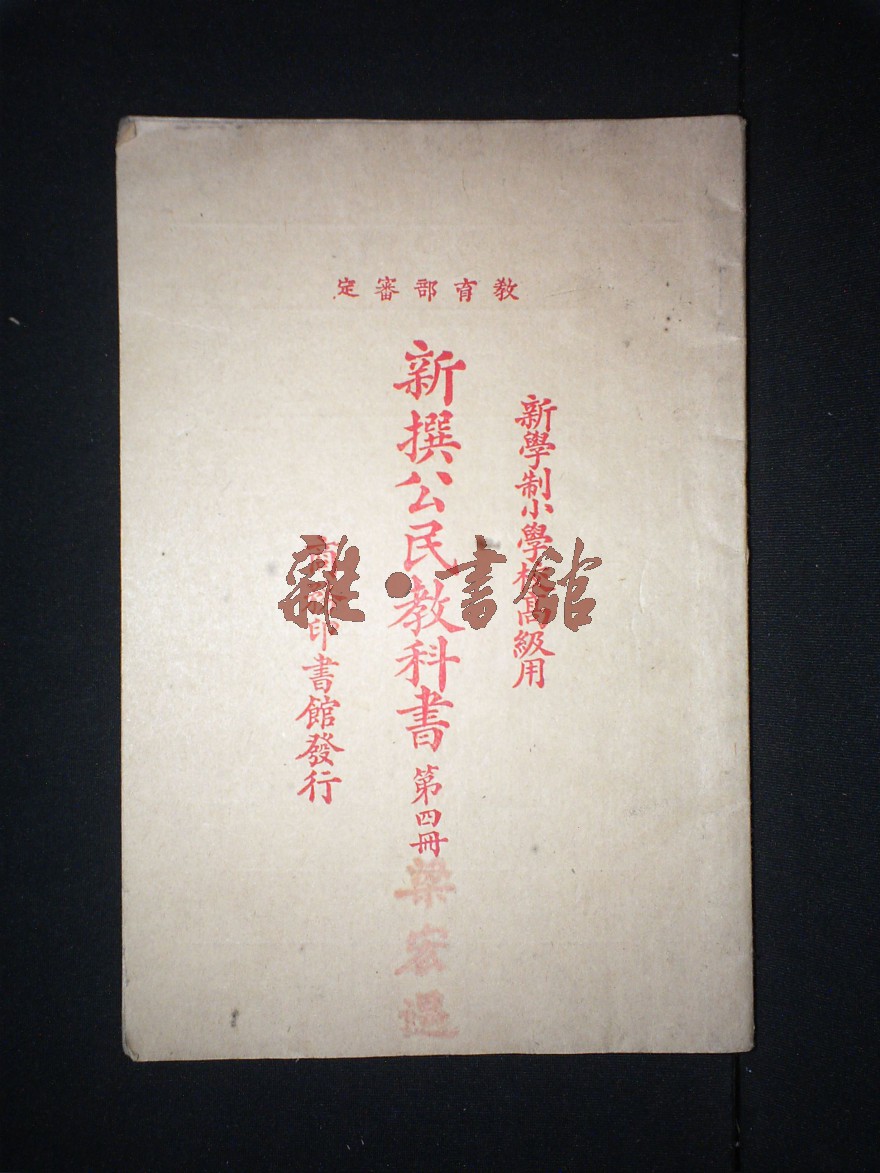 教育部審定
新學制小學校高級用
新撰公民教科書 第四冊
商務印書館發行
梁宏
雜·書館